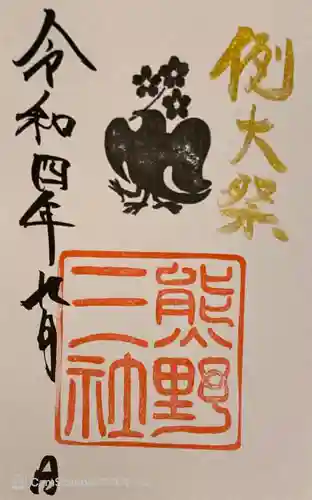 例大祭
熊野
三社
令和四年九月 日